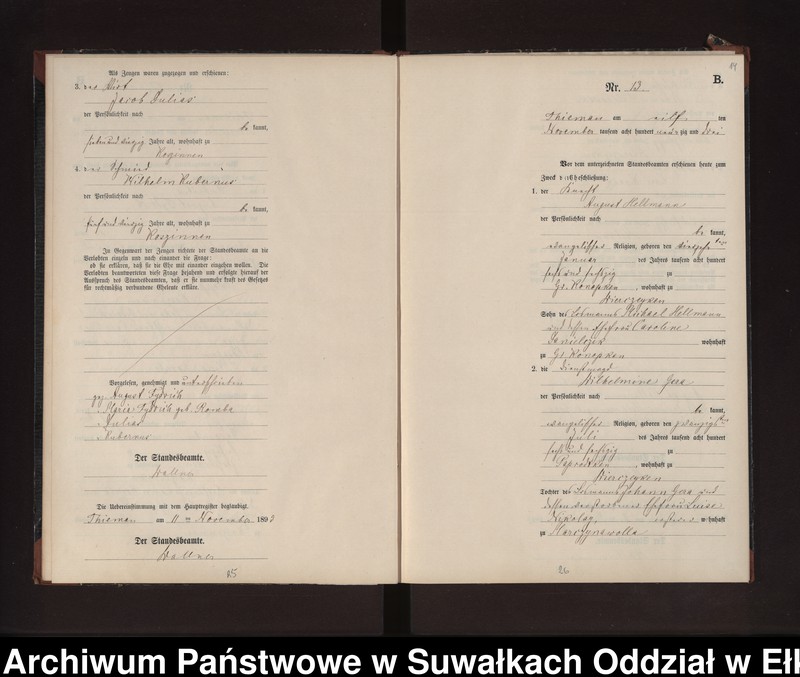 Als Zeugen waren zugezogen und erschienen:
3. der Wirt
Jacob Julias
der Persönlichkeit nach
be kannt,
Jahre alt, wohnhaft zu
Rogonnen
4. der Schmied
Wilhelm Kubernus
der Persönlichkeit nach
be kannt,
fünfundvierzig Jahre alt, wohnhaft zu
Roszinnen
In Gegenwart der Zeugen richtete der Standesbeamte an die
Verlobten einzeln und nach einander die Frage:
ob sie erklären, daß sie die Ehe mit einander eingehen wollen. Die
Verlobten beantworteten diese Frage bejahend und erfolgte hierauf der
Ausspruch des Standesbeamten, daß er sie nunmehr kraft des Gesetzes
für rechtmäßig verbundene Eheleute erkläre.
Vorgelesen, genehmigt und unterschrieben
gez. August
Marie geb.
Julias
Kubernus
Der Standesbeamte.
Wallner
Die Uebereinstimmung mit dem Hauptregister beglaubigt.
Thiemau am 11 ten November 1893
Der Standesbeamte.
Wallner
25
14
B.
Nr. 13
Thiemau am eilf ten
November tausend acht hundert neun zig und drei
Vor dem unterzeichneten Standesbeamten erschienen heute zum
Zweck der Eheschließung:
1. der Knecht
August Hellmann
der Persönlichkeit nach
be kannt,
evangelischer Religion, geboren den
Januar des Jahres tausend acht hundert
sechs und sechzig zu
Gr. Konopken, wohnhaft zu
Wierczeyken
Sohn des Losmanns Michael Hellmann
und dessen Ehefrau Caroline
Danielozik wohnhaft
zu Gr. Konopken
2. die Dienstmagd
Wilhelmine Jera
der Persönlichkeit nach
be kannt,
evangelischer Religion, geboren den zwanzigsten
Juli des Jahres tausend acht hundert
sechs und sechzig zu
wohnhaft zu
Wierczeyken
Tochter des Losmanns Johann Jera und
dessen verstorbenen Ehefrau Luise
Nikolay, ersterer wohnhaft
zu Marczynowolla
26
Archiwum Państwowe w Suwałkach Oddział w Ełk